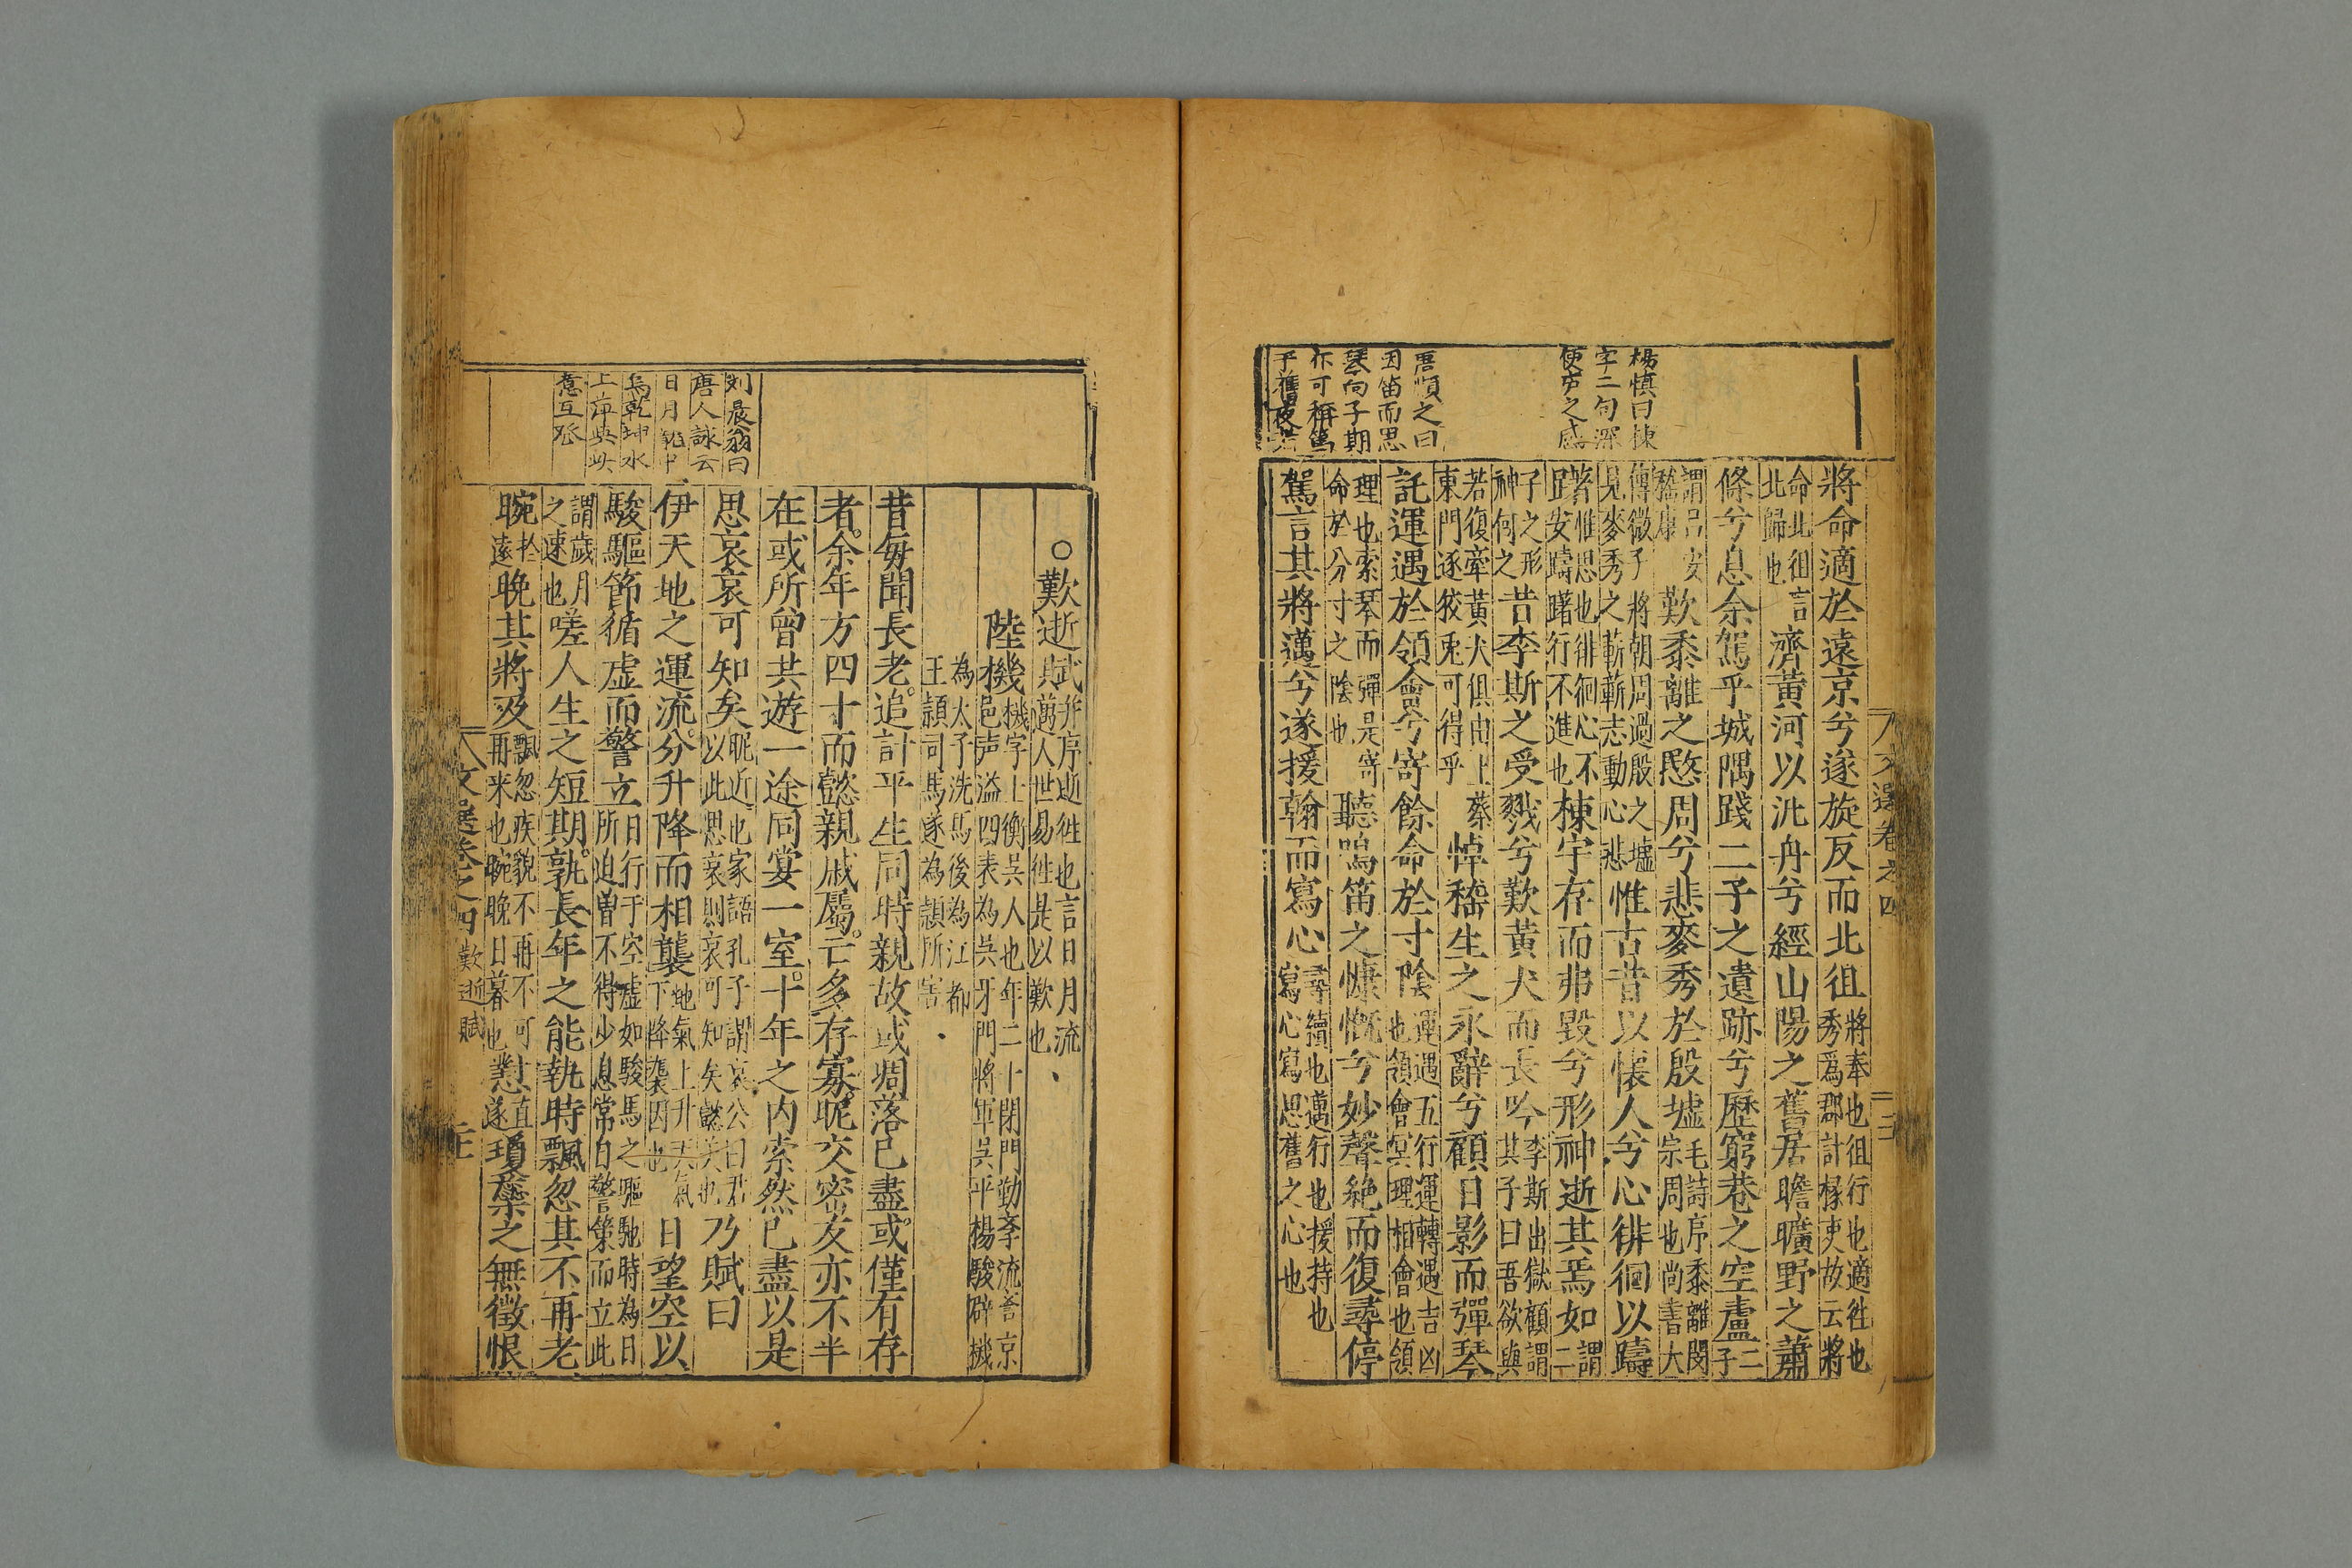 楊慎曰棟
字二句深
使有之感
因笛而思
琴向子期
將命適於遠京兮遂旋反而北徂
將奉也徂行也適徃也
秀為郡計掾吏故云將
命北徂言
北歸也
濟黃河以汎舟兮經山陽之舊居瞻曠野之蕭
條兮息余駕乎城隅踐二子之遺跡兮歷窮巷之空廬
二
子
謂呂安
嵇康
歎黍離之愍周兮悲麥秀於殷墟
毛詩序黍離閔
宗周也尚書大
傳微子將朝周過殷之墟
見麥秀之蔪蔪志動心悲
惟古昔以懐人兮心徘徊以躊
著惟思也徘徊心不
躇安躊躇行不進也
棟宇存而弗毀兮形神逝其焉如
謂
二
子之形
神何之
昔李斯之受戮兮歎黃犬而長吟
李斯出獄顧謂
其子曰吾欲與
若復牽黃犬俱出上蔡
東門逐狡兎可得乎
悼嵇生之永辭兮顧日影而彈琴
託運遇於領會兮寄餘命於寸陰
運遇五行運轉遇吉凶
也領會冥理相會也領
理也索琴而彈是寄
命於分寸之陰也
聽鳴笛之慷慨兮妙聲絶而復尋停
駕言其將邁兮遂援翰而寫心
尋續也邁行也援持也
寫心寫思舊之心也
刘辰翁曰
唐人詠云
乾坤水
上萍
○歎逝賦
并序逝徃也言日月流
邁人世易徃是以歎也
陸機
機字士衡吳人也年二十閉門勤學流譽京
邑声溢四表為吳牙門將軍吳平楊駿辟機
為太子洗馬後為江都
王頴司馬遂為頴所害
昔毎聞長老追計平生同時親故或凋落已盡或僅有存
者余年方四十而懿親戚屬亡多存寡昵交密友亦不半
在或所曾共遊一途同宴一室十年之内索然已盡以是
思哀哀可知矣
昵近也家語孔子謂哀公曰君
以此思哀則哀可知矣懿美也
乃賦曰
伊天地之運流分升降而相襲
地氣上升天氣
下降襲因也
日望空以
駿驅節循虛而警立
日行于空虛如駿馬之驅馳時為日
所迫曽不得少息常自警策而立此
謂歲月
之速也
嗟人生之短期孰長年之能執時飄忽其不再老
晼晚其將及
飄忽疾貌不再不可
再来也晼晚日暮也
懟瓊蘂之無徵恨
文選卷之四
歎逝賦